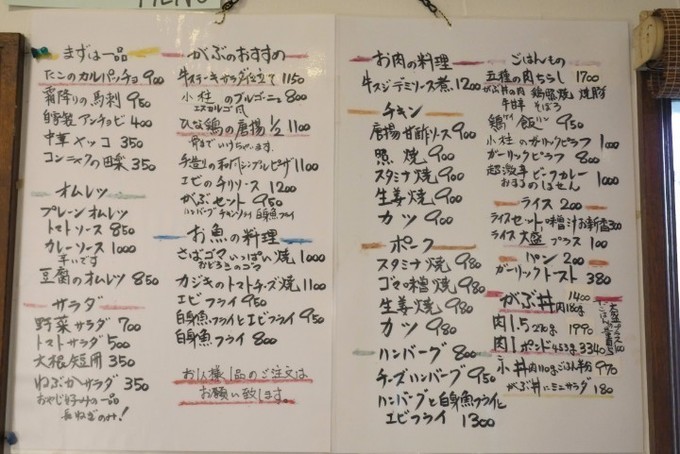 MENU
まずは一品
たこのカルパッチョ 900
霜降りの馬刺 950
自家製アンチョビ 400
中華メッコ 350
コンニャクの田楽 350
オムレツ
プレーンオムレツ
トマトソース 850
カレーソース 1000
辛いです
豆腐のオムレツ 850
サラダ
野菜サラダ 700
トマトサラダ 500
大根短冊 350
ねぶかサラダ 350
おやじ好みの一品
長ねぎのみ!
がぶのおすすめ
牛ステーキサラダ仕立て 1150
小柱のブルゴーニュ 800
エスカルゴ風
ひな鶏の唐揚 1/2 1100
骨までいけちゃいます
手造りの和风シンプルピザ 1100
エビのチリソース 1200
がぶセット 950
ハンバーグ チキンフライ 白身魚フライ
お魚の料理
さばゴマいっぱい焼 1000
おどろきのゴマ
カジキのトマトチーズ焼 1100
エビフライ 950
白身魚フライとエビフライ 950
白身魚フライ 800
お1人様1品のご注文は
お願い致します。
お肉の料理
牛スジデミソース煮 1200
チキン
唐揚甘酢ソース 900
照焼 900
スタミナ焼 900
生姜焼 900
カツ 900
ポーク
スタミナ焼 980
ゴマ味噌焼 980
生姜焼 980
カツ 980
ハンバーグ 800
チーズハンバーグ 950
ハンバーグと白身魚フライと
エビフライ 1300
ごはんもの
五種の肉ちらし 1700
がぶ丼の肉 鶏照焼 焼豚
牛甘辛 そぼろ
鶏飯 950
小柱のガーリックピラフ 1000
ガーリックピラフ 800
超激辛ビーフカレー 1000
ライス 200
ライスセット味噌汁お新香 300
ライス大盛プラス 100
パン 200
ガーリックトースト 380
がぶ丼 1400
肉180g
肉1.5 270g 1990
肉1ポンド 453g 3340
小丼 肉110gごはん半分 970
がぶ丼にミニサラダ 180